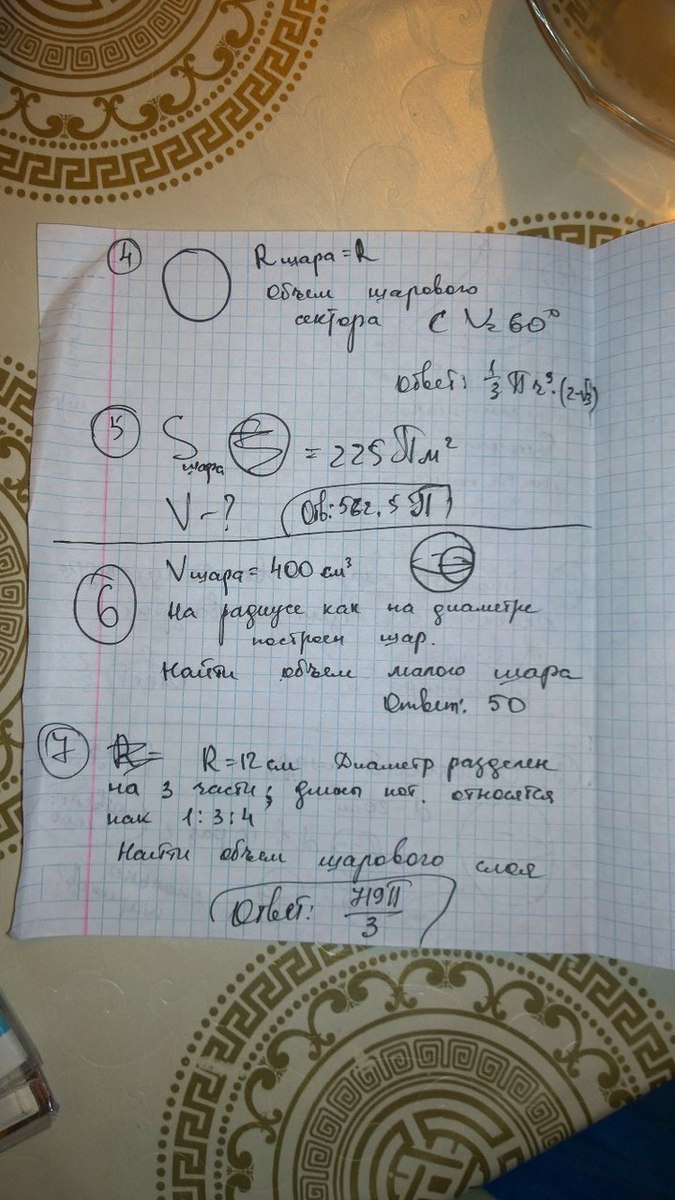 4 R шара = R
Объем шарового
сектора с V = 60°
ответ: 1/3 П r³·(2-√3)
5 S шара = 225 П м²
V - ? Отв: 562,5 П
6 V шара = 400 см³
На радиусе как на диаметре
построен шар.
Найти объем малого шара
Ответ: 50
7 R = 12 см Диаметр разделен
на 3 части; длины кот. относятся
как 1:3:4
Найти объем шарового слоя
Ответ: 719П/3